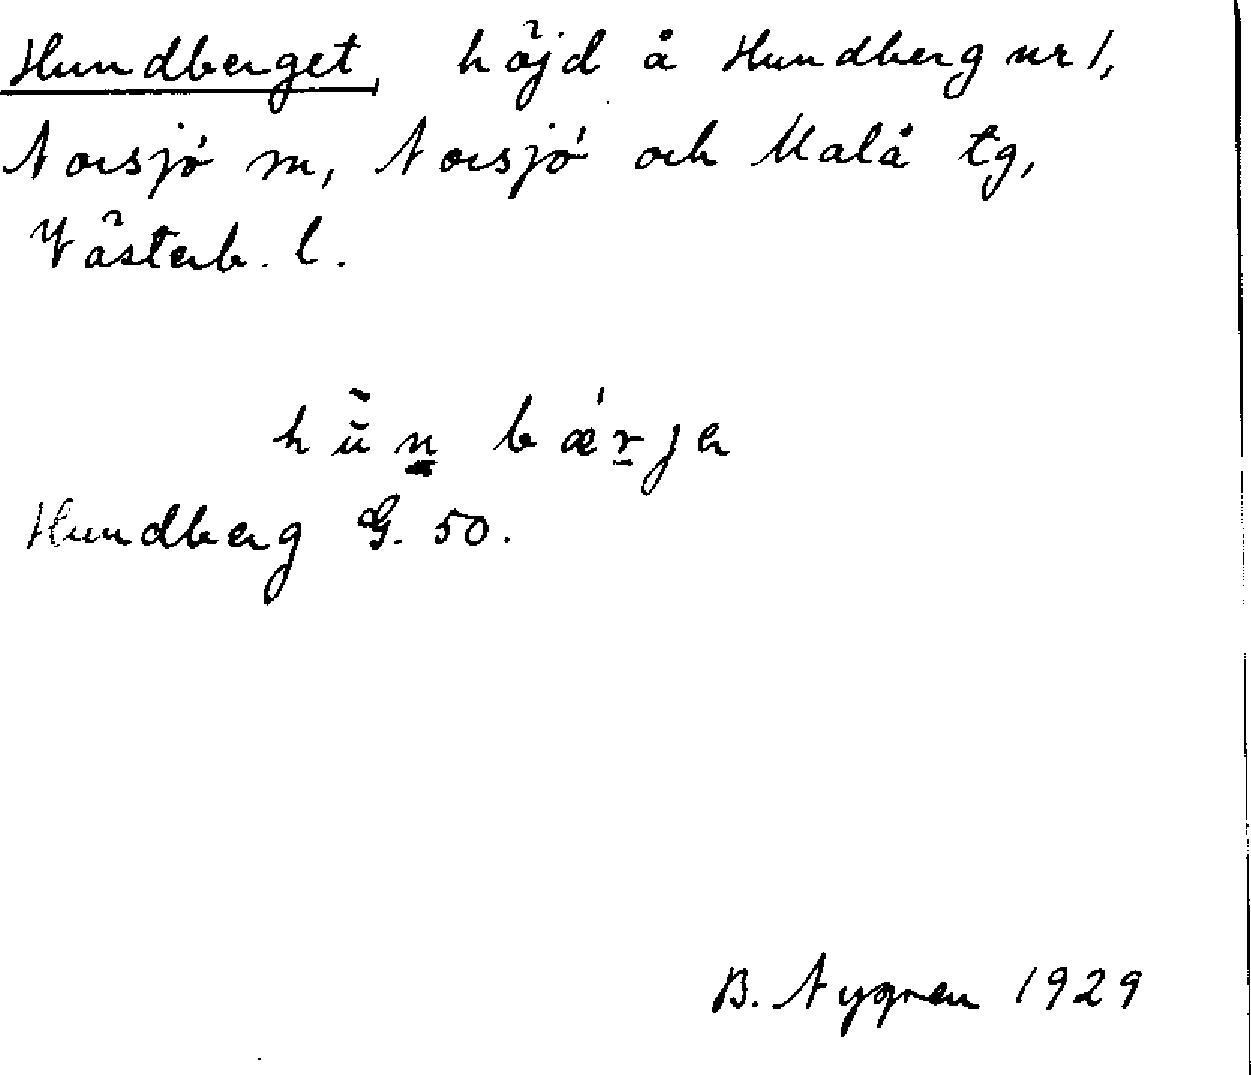 Hundberget, höjd å Hundberg nr 1,
Norsjö m, Norsjö och Malå tg,
Västerb. l.
hùn bǽrje
Hundberg G. 50.
B. Nygren 1929